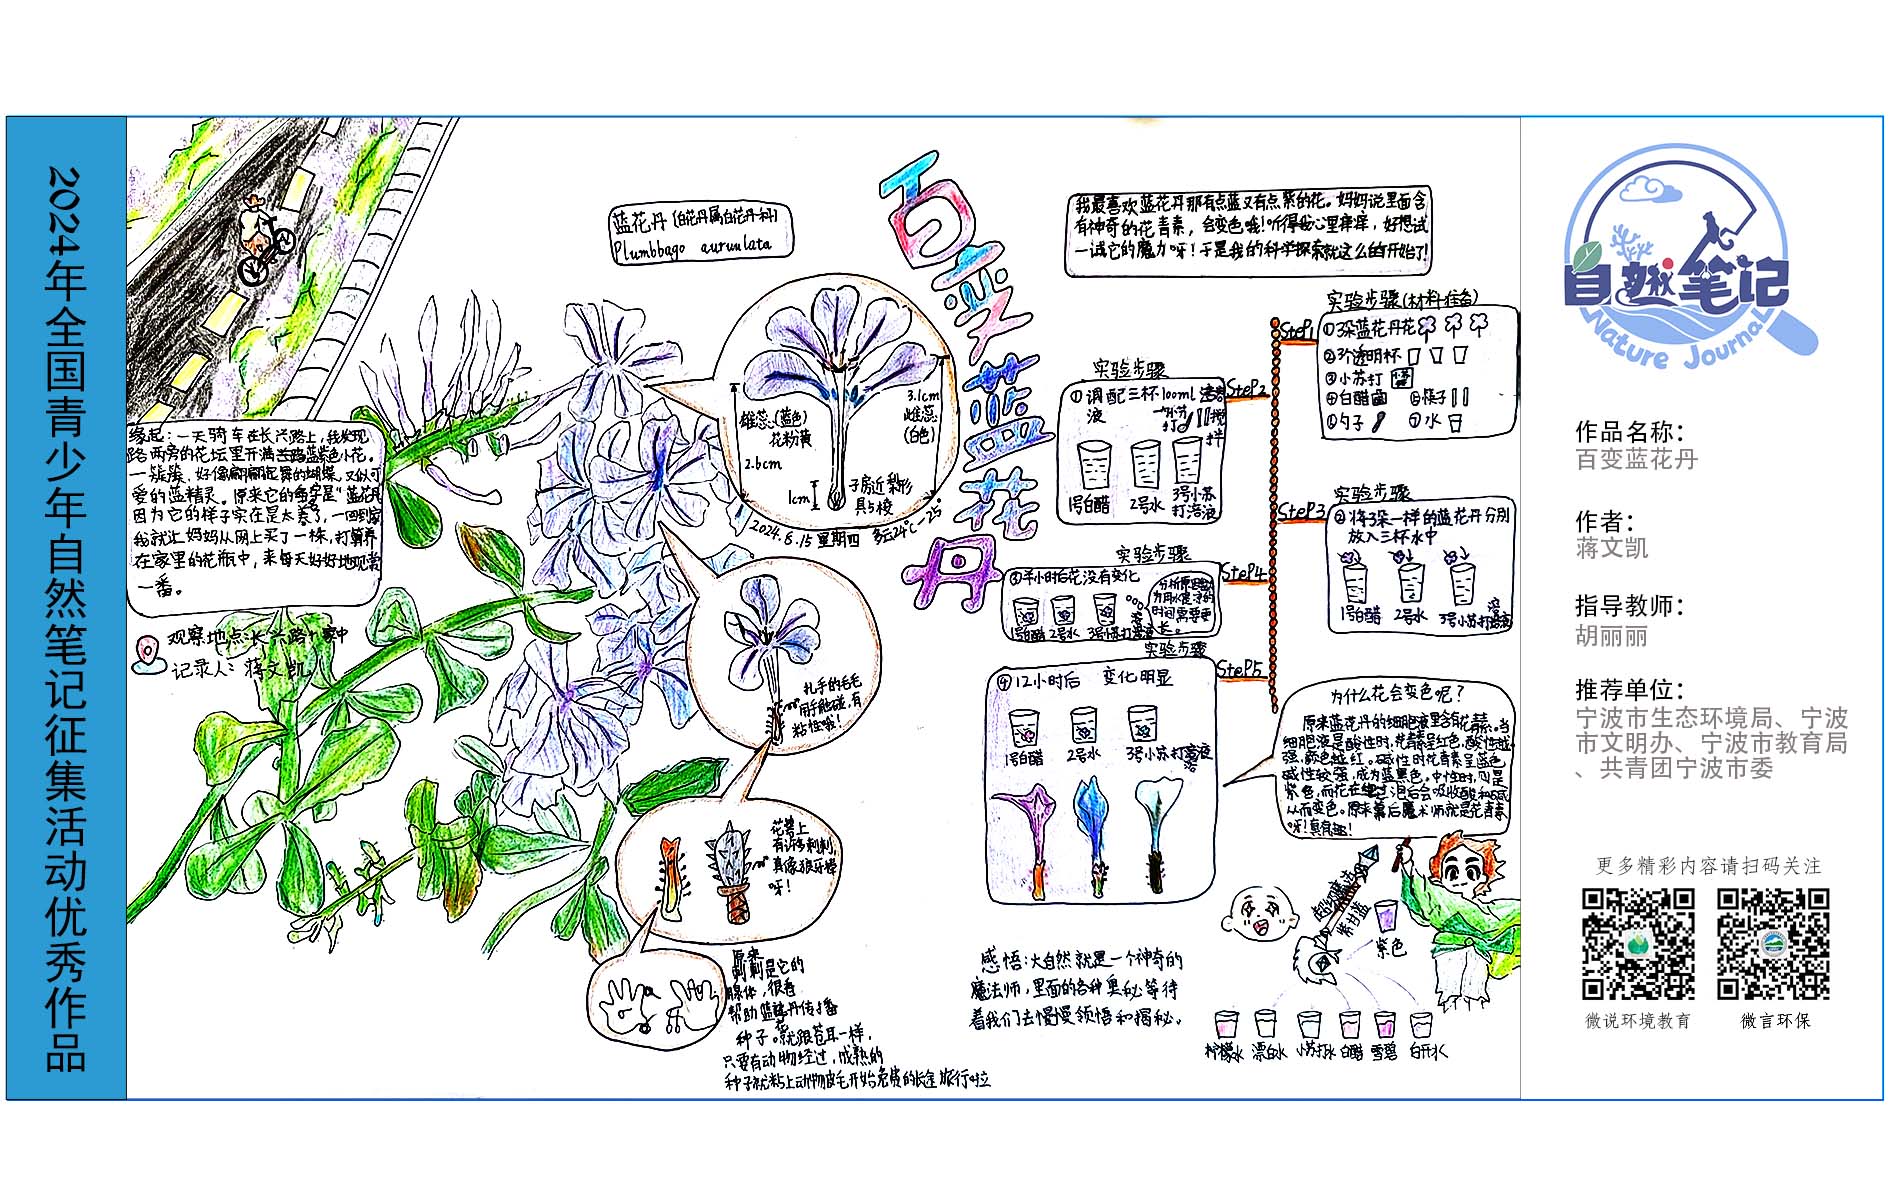 2024年全国青少年自然笔记征集活动优秀作品
百变蓝花丹
蓝花丹(白花丹属白花丹科)
Plumbbago auruulata
缘起:一天骑车在长兴路上,我发现
路两旁的花坛里开满蓝紫色小花。
一簇簇,好像翩翩起舞的蝴蝶,又似可
爱的蓝精灵。原来它的名字是"蓝花丹
因为它的样子实在是太美了,一回到家
我就让妈妈从网上买了一株,打算养
在家里的花瓶中,来每天好好地观赏
一番。
观察地点:长兴路
记录人:蒋文凯
雄蕊(蓝色)
花粉黄
2.6cm
3.1cm
雌蕊
(白色)
1cm
子房近梨形
具5棱
2024.6.15 星期四 多云24℃-25°
扎手的毛毛
用手触碰,有
粘性哦!
花萼上
有许多刺刺,
真像狼牙棒
呀!
原来
刺刺是它的
腺体,很香
帮助蓝花丹传播
种子。就跟苍耳一样,
只要有动物经过,成熟的
种子就粘上动物皮毛开始免费的长途旅行啦
我最喜欢蓝花丹那有点蓝又有点紫的花。妈妈说里面含
有神奇的花青素,会变色哦!听得我心里痒痒,好想试
一试它的魔力呀!于是我的科学探索就这么的开始了!
SteP1
实验步骤(材料准备)
①3朵蓝花丹花
②3个透明杯
③小苏打
④白醋
⑤筷子
⑥勺子
⑦水
SteP2
实验步骤
①调配三杯100ml
液
搅拌
1号白醋
2号水
3号小苏
打溶液
SteP3
实验步骤
②将3朵一样的蓝花丹分别
放入三杯水中
1号白醋
2号水
3号小苏打溶液
SteP4
实验步骤
③半小时后花没有变化
时间需要更
长。
1号白醋
2号水
3号小苏打溶液
SteP5
实验步骤
④12小时后 变化明显
1号白醋
2号水
3号小苏打溶液
为什么花会变色呢?
原来蓝花丹的细胞液里含有花青素。当
细胞液是酸性时,花青素呈红色,酸性越
强,颜色越红。碱性时花青素呈蓝色,
碱性较强,成为蓝黑色。中性时,则是
紫色,而花在浸泡后会吸收酸和碱
从而变色。原来幕后魔术师就是花青素
呀!真有趣!
感悟:大自然就是一个神奇的
魔法师,里面的各种奥秘等待
着我们去慢慢领悟和揭秘。
紫甘蓝
紫色
柠檬水
漂白水
小苏打水
白醋
雪碧
白开水
自然笔记
Nature Journal
作品名称:
百变蓝花丹
作者:
蒋文凯
指导教师:
胡丽丽
推荐单位:
宁波市生态环境局、宁波
市文明办、宁波市教育局
、共青团宁波市委
更多精彩内容请扫码关注
微说环境教育
微言环保